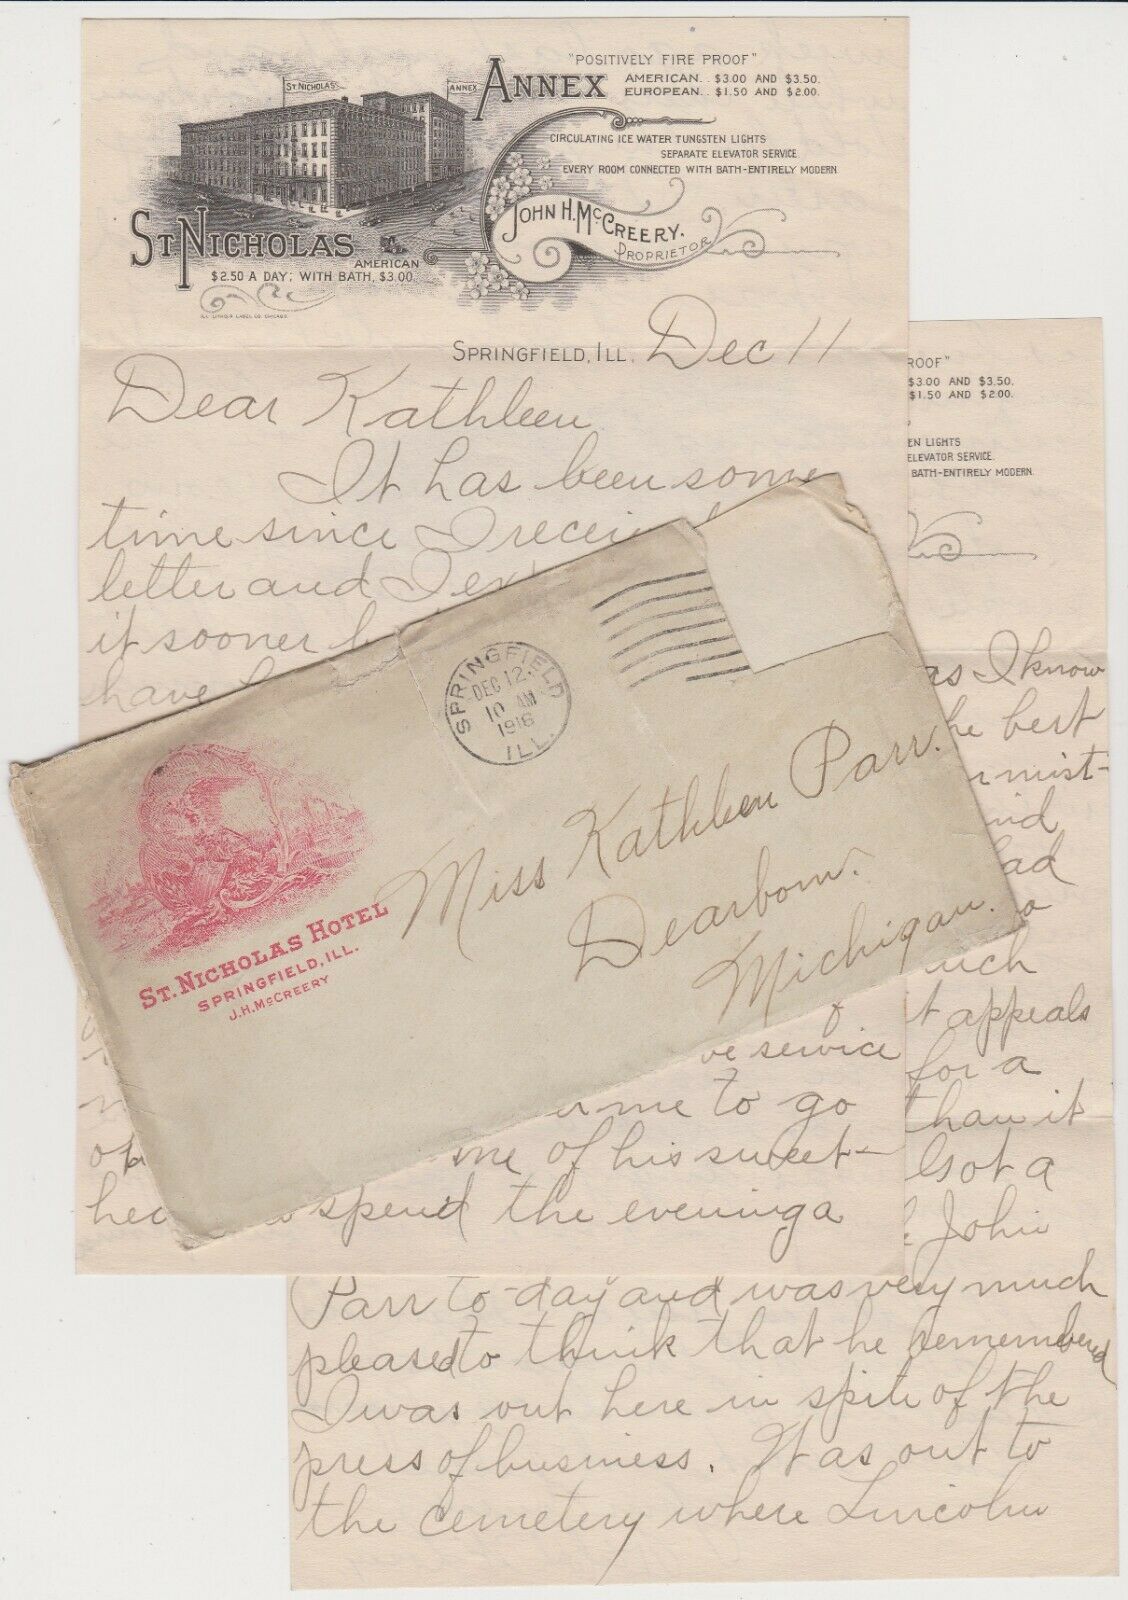 "POSITIVELY FIRE PROOF"
ANNEX
AMERICAN.. $3.00 AND $3.50.
EUROPEAN.. $1.50 AND $2.00.
ST. NICHOLAS
ANNEX
CIRCULATING ICE WATER TUNGSTEN LIGHTS
SEPARATE ELEVATOR SERVICE
EVERY ROOM CONNECTED WITH BATH-ENTIRELY MODERN
JOHN H. McCREERY.
PROPRIETOR
ST NICHOLAS
AMERICAN
$2.50 A DAY; WITH BATH, $3.00.
SPRINGFIELD, ILL. Dec 11
Dear Kathleen
It has been some
time since I
letter and I
it sooner
have
ve service
me to go
of his sweet-
spend the evening a
SPRINGFIELD
DEC 12
10 AM
1916
ILL.
Miss Kathleen Parr.
Dearborn.
Michigan.
ST. NICHOLAS HOTEL
SPRINGFIELD, ILL.
J.H. McCREERY
ROOF"
$3.00 AND $3.50.
$1.50 AND $2.00.
EN LIGHTS
ELEVATOR SERVICE.
BATH-ENTIRELY MODERN.
as I know
he best
mist-
ad
t appeals
for a
than it
Got a
John
Parr to-day and was very much
pleased to think that he remembered
I was out here in spite of the
press of business. Was out to
the cemetery where Lincoln